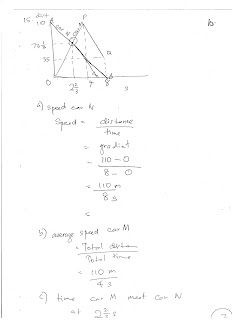 15.
P
70⅓
35
Q
O 2⅔ 4 8 s
a) speed car N
Speed = distance
time
= gradient
= 110 - 0
8 - 0
= 110 m
8 s
=
b) average speed car M
= Total distan
Total time
= 110 m
4 s
c) time car M meet car N
at 2⅔ s